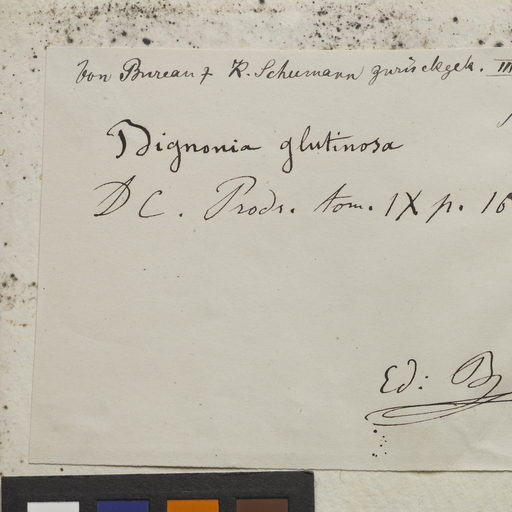 Von Bureau & K. Schumann zurückgek. III
Bignonia glutinosa
DC. Prodr. tom. IX p. 16
Ed: B